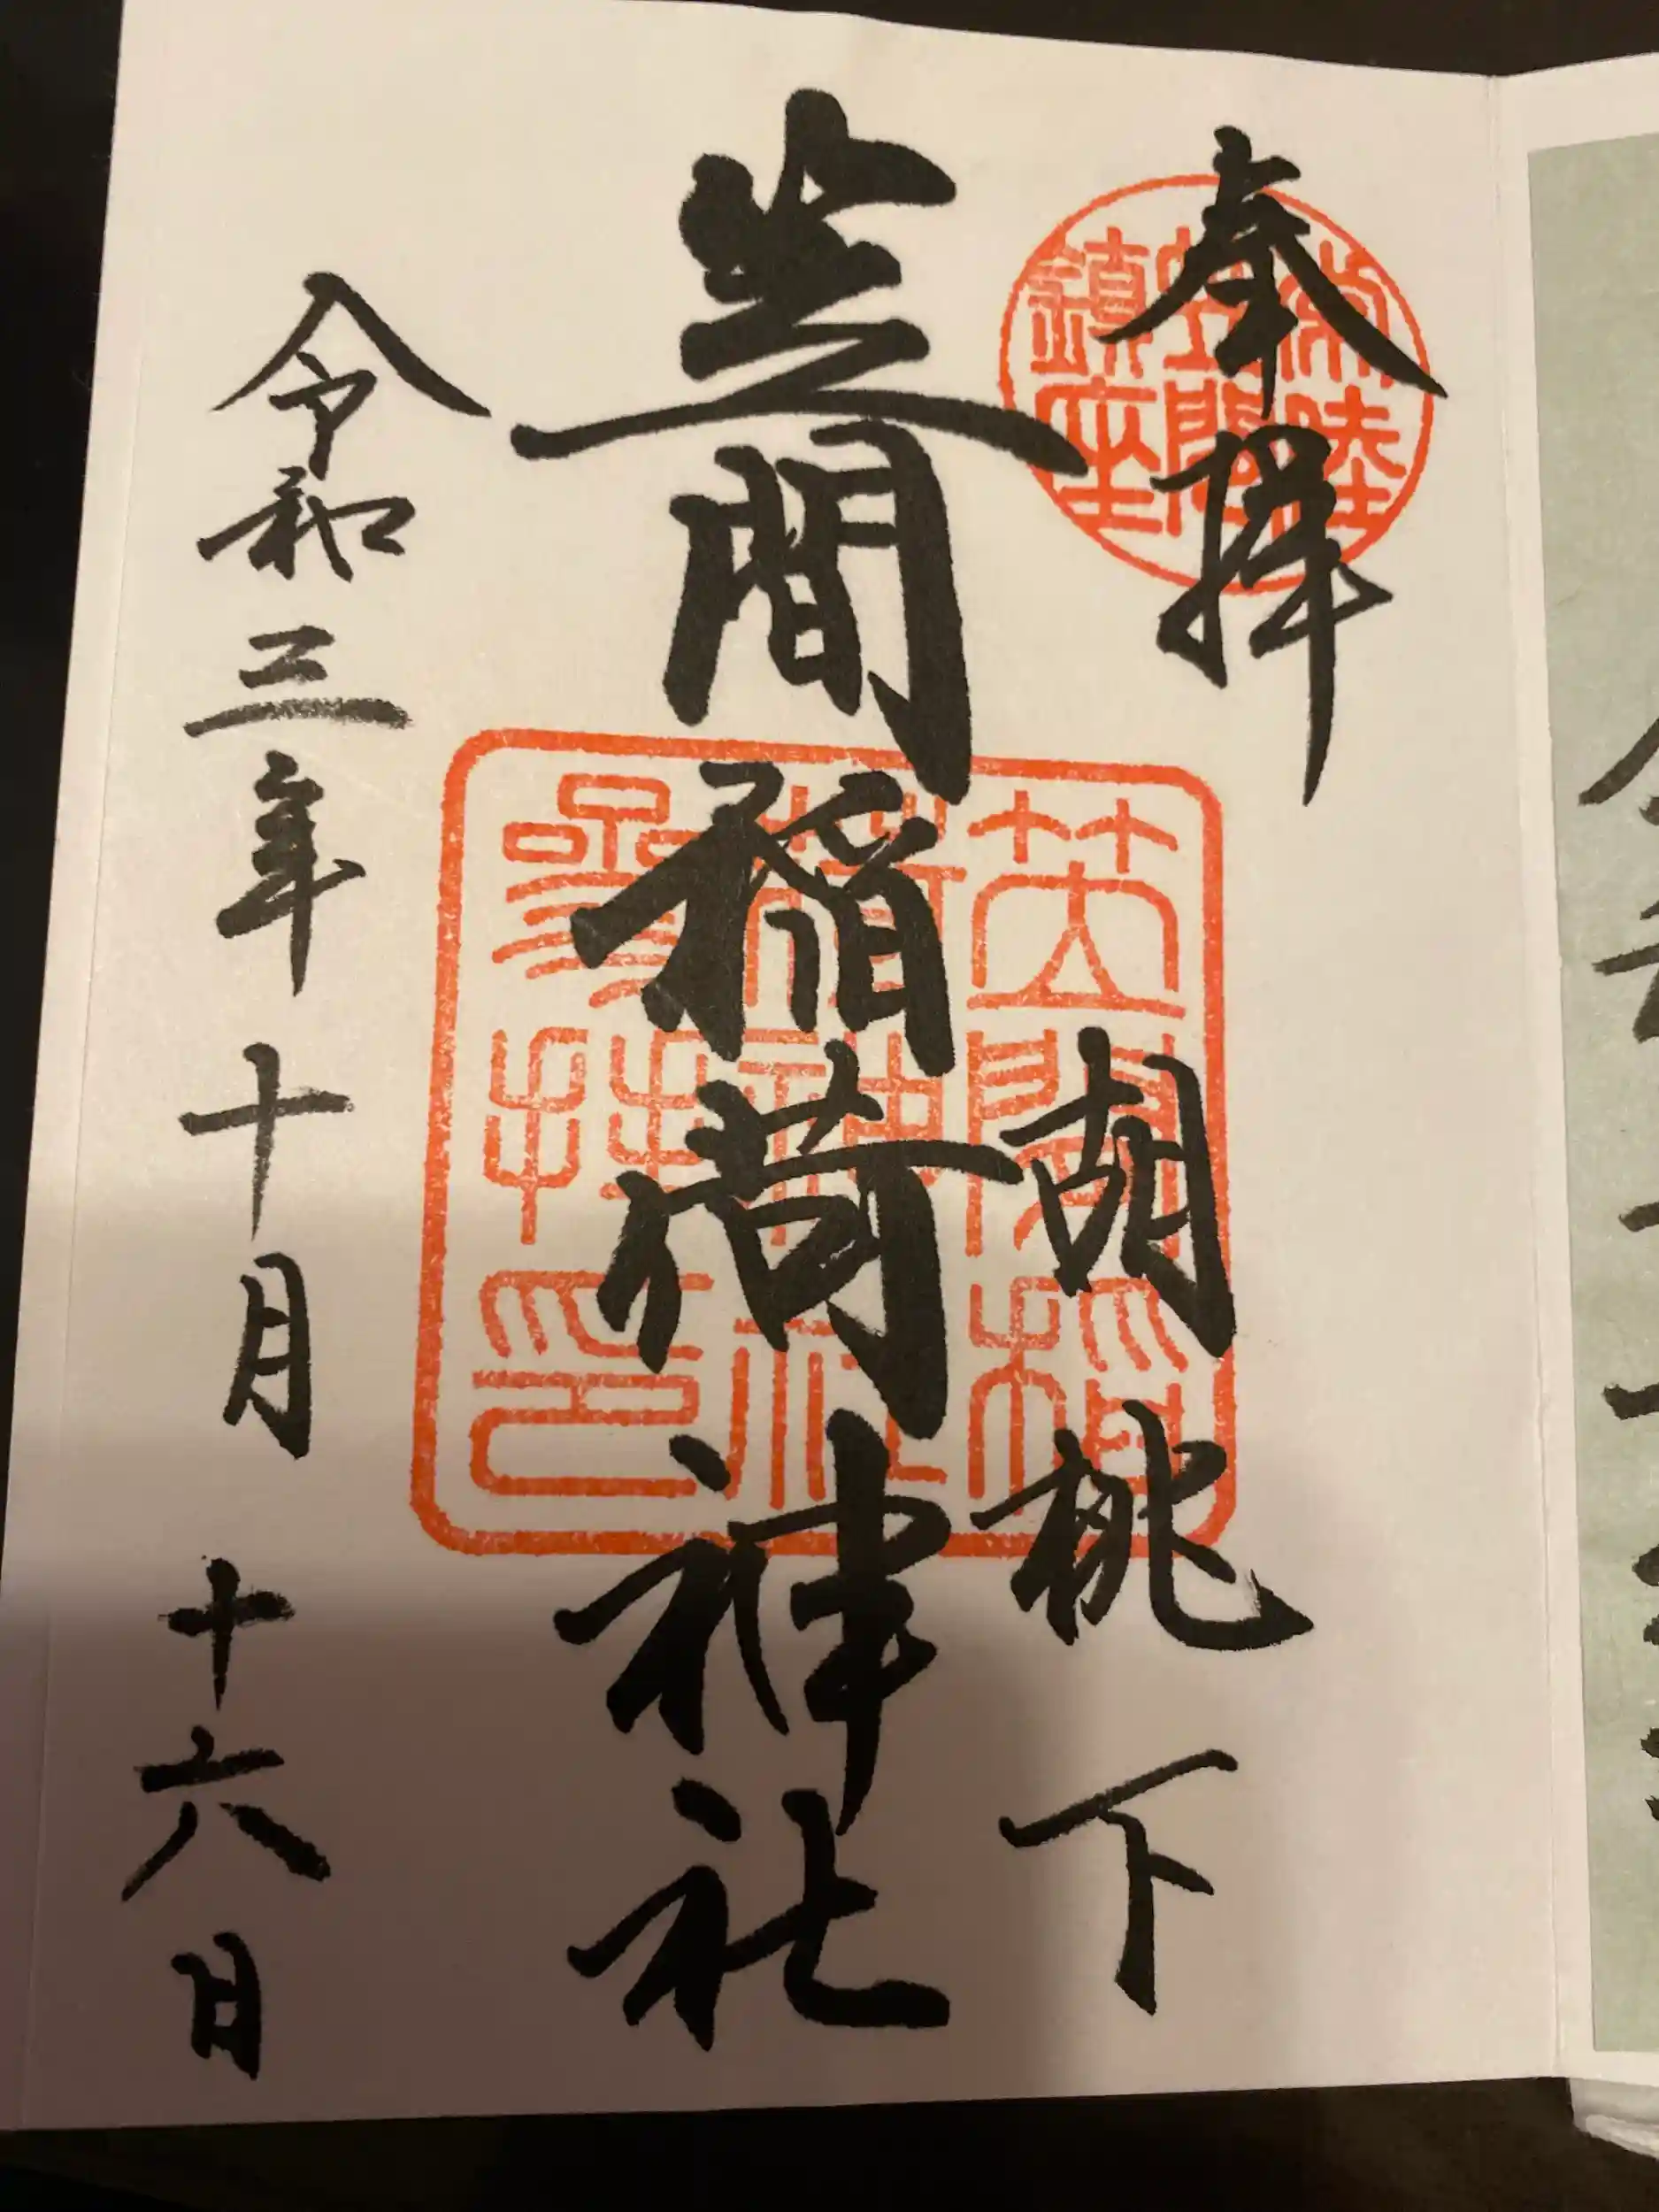 奉拝
胡桃下
常陸
笠間
鎮座
笠間稲荷神社
笠間稲
荷神社
參拝印
令和三年十月十六日